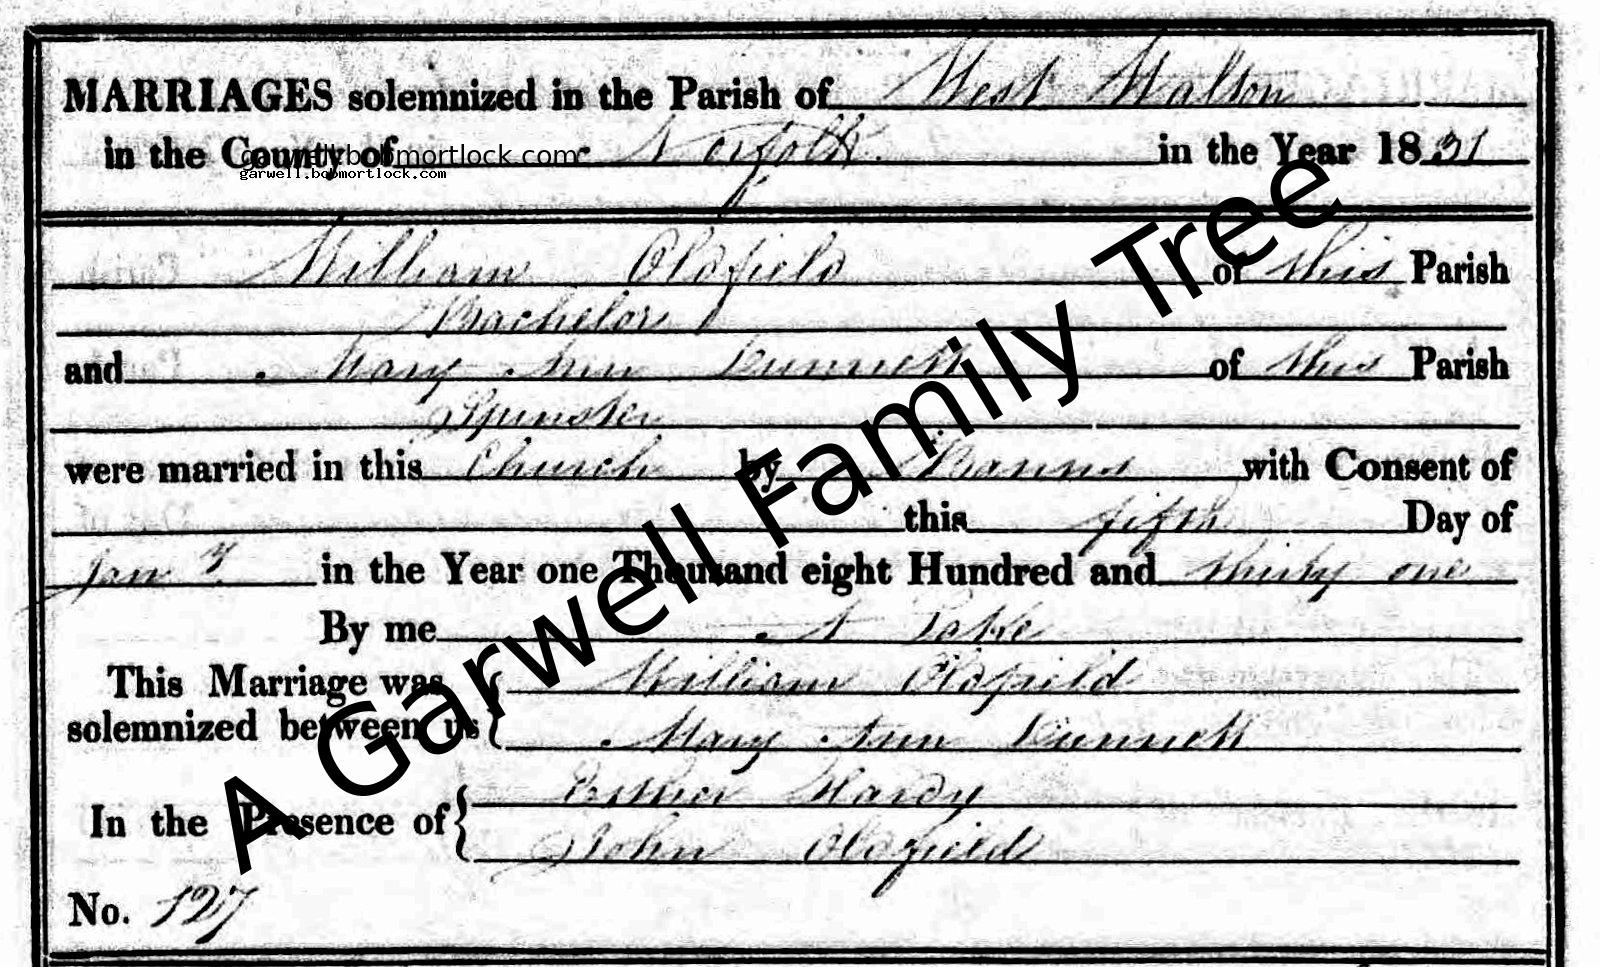 MARRIAGES solemnized in the Parish of West Walton
in the County of Norfolk. in the Year 1831
garwell.bobmortlock.com
garwell.bobmortlock.com
William Oldfield of this Parish
Bachelor
and Mary Ann Dunnett of this Parish
Spinster
were married in this Church by Banns with Consent of
this fifth Day of
Jany in the Year one Thousand eight Hundred and thirty one
By me
This Marriage was solemnized between us { William Oldfield
Mary Ann Dunnett
In the Presence of { Esther Hardy
John Oldfield
No. 127
A Garwell Family Tree